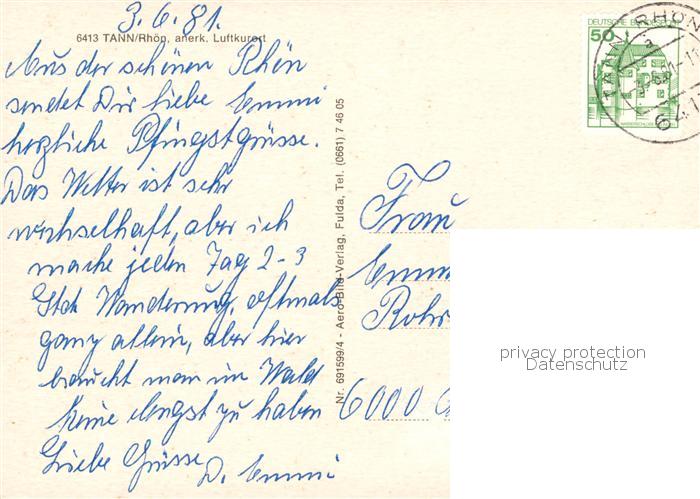 3.6.81.
6413 TANN/Rhön, anerk. Luftkurort
Aus der schönen Rhön
sendet Dir liebe Emmi
herzliche Pfingstgrüsse.
Das Wetter ist sehr
wechselhaft, aber ich
mache jeden Tag 2-3
Std Wanderung, oftmals
ganz allein, aber hier
braucht man im Wald
keine Angst zu haben
Liebe Grüsse
D. Emmi
Nr. 691599/4 - Aero-Bild-Verlag, Fulda, Tel. (0661) 7 46 05
DEUTSCHE BUNDESPOST
50
TANN, RHÖN
a
641
Frau
Emm
Rohr
6000
privacy protection
Datenschutz